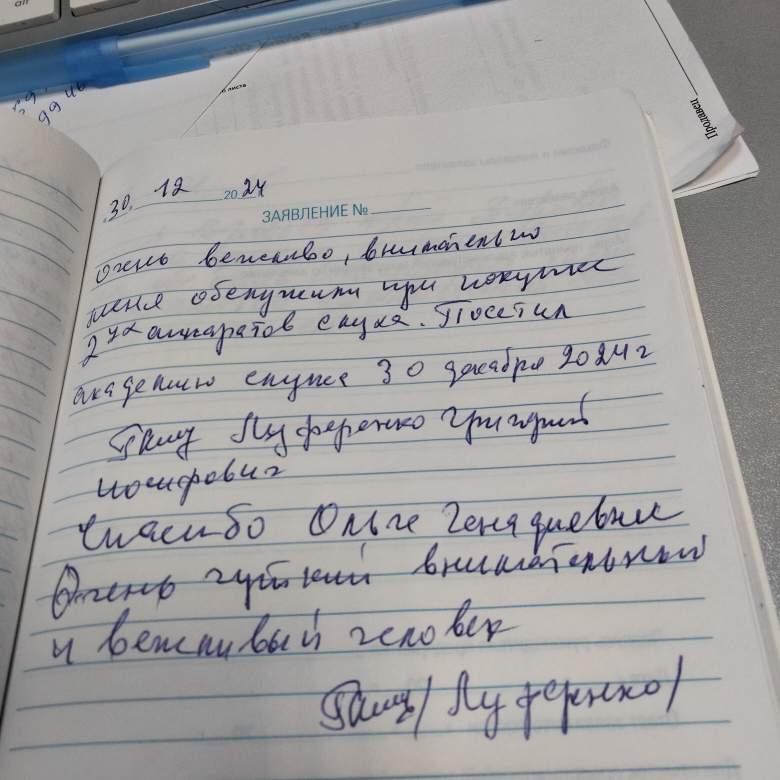 alt
99 46
Продавец
30. 12 2024
ЗАЯВЛЕНИЕ №
очень вежливо, внимательно
меня обслужили при покупке
2ух аппаратов слуха. Посетил
академию слуха 30 декабря 2024 г
Луференко Григорий
Иосифович
Спасибо Ольге Генадиевне
Очень чуткий внимательный
и вежливый человек
/Луференко/